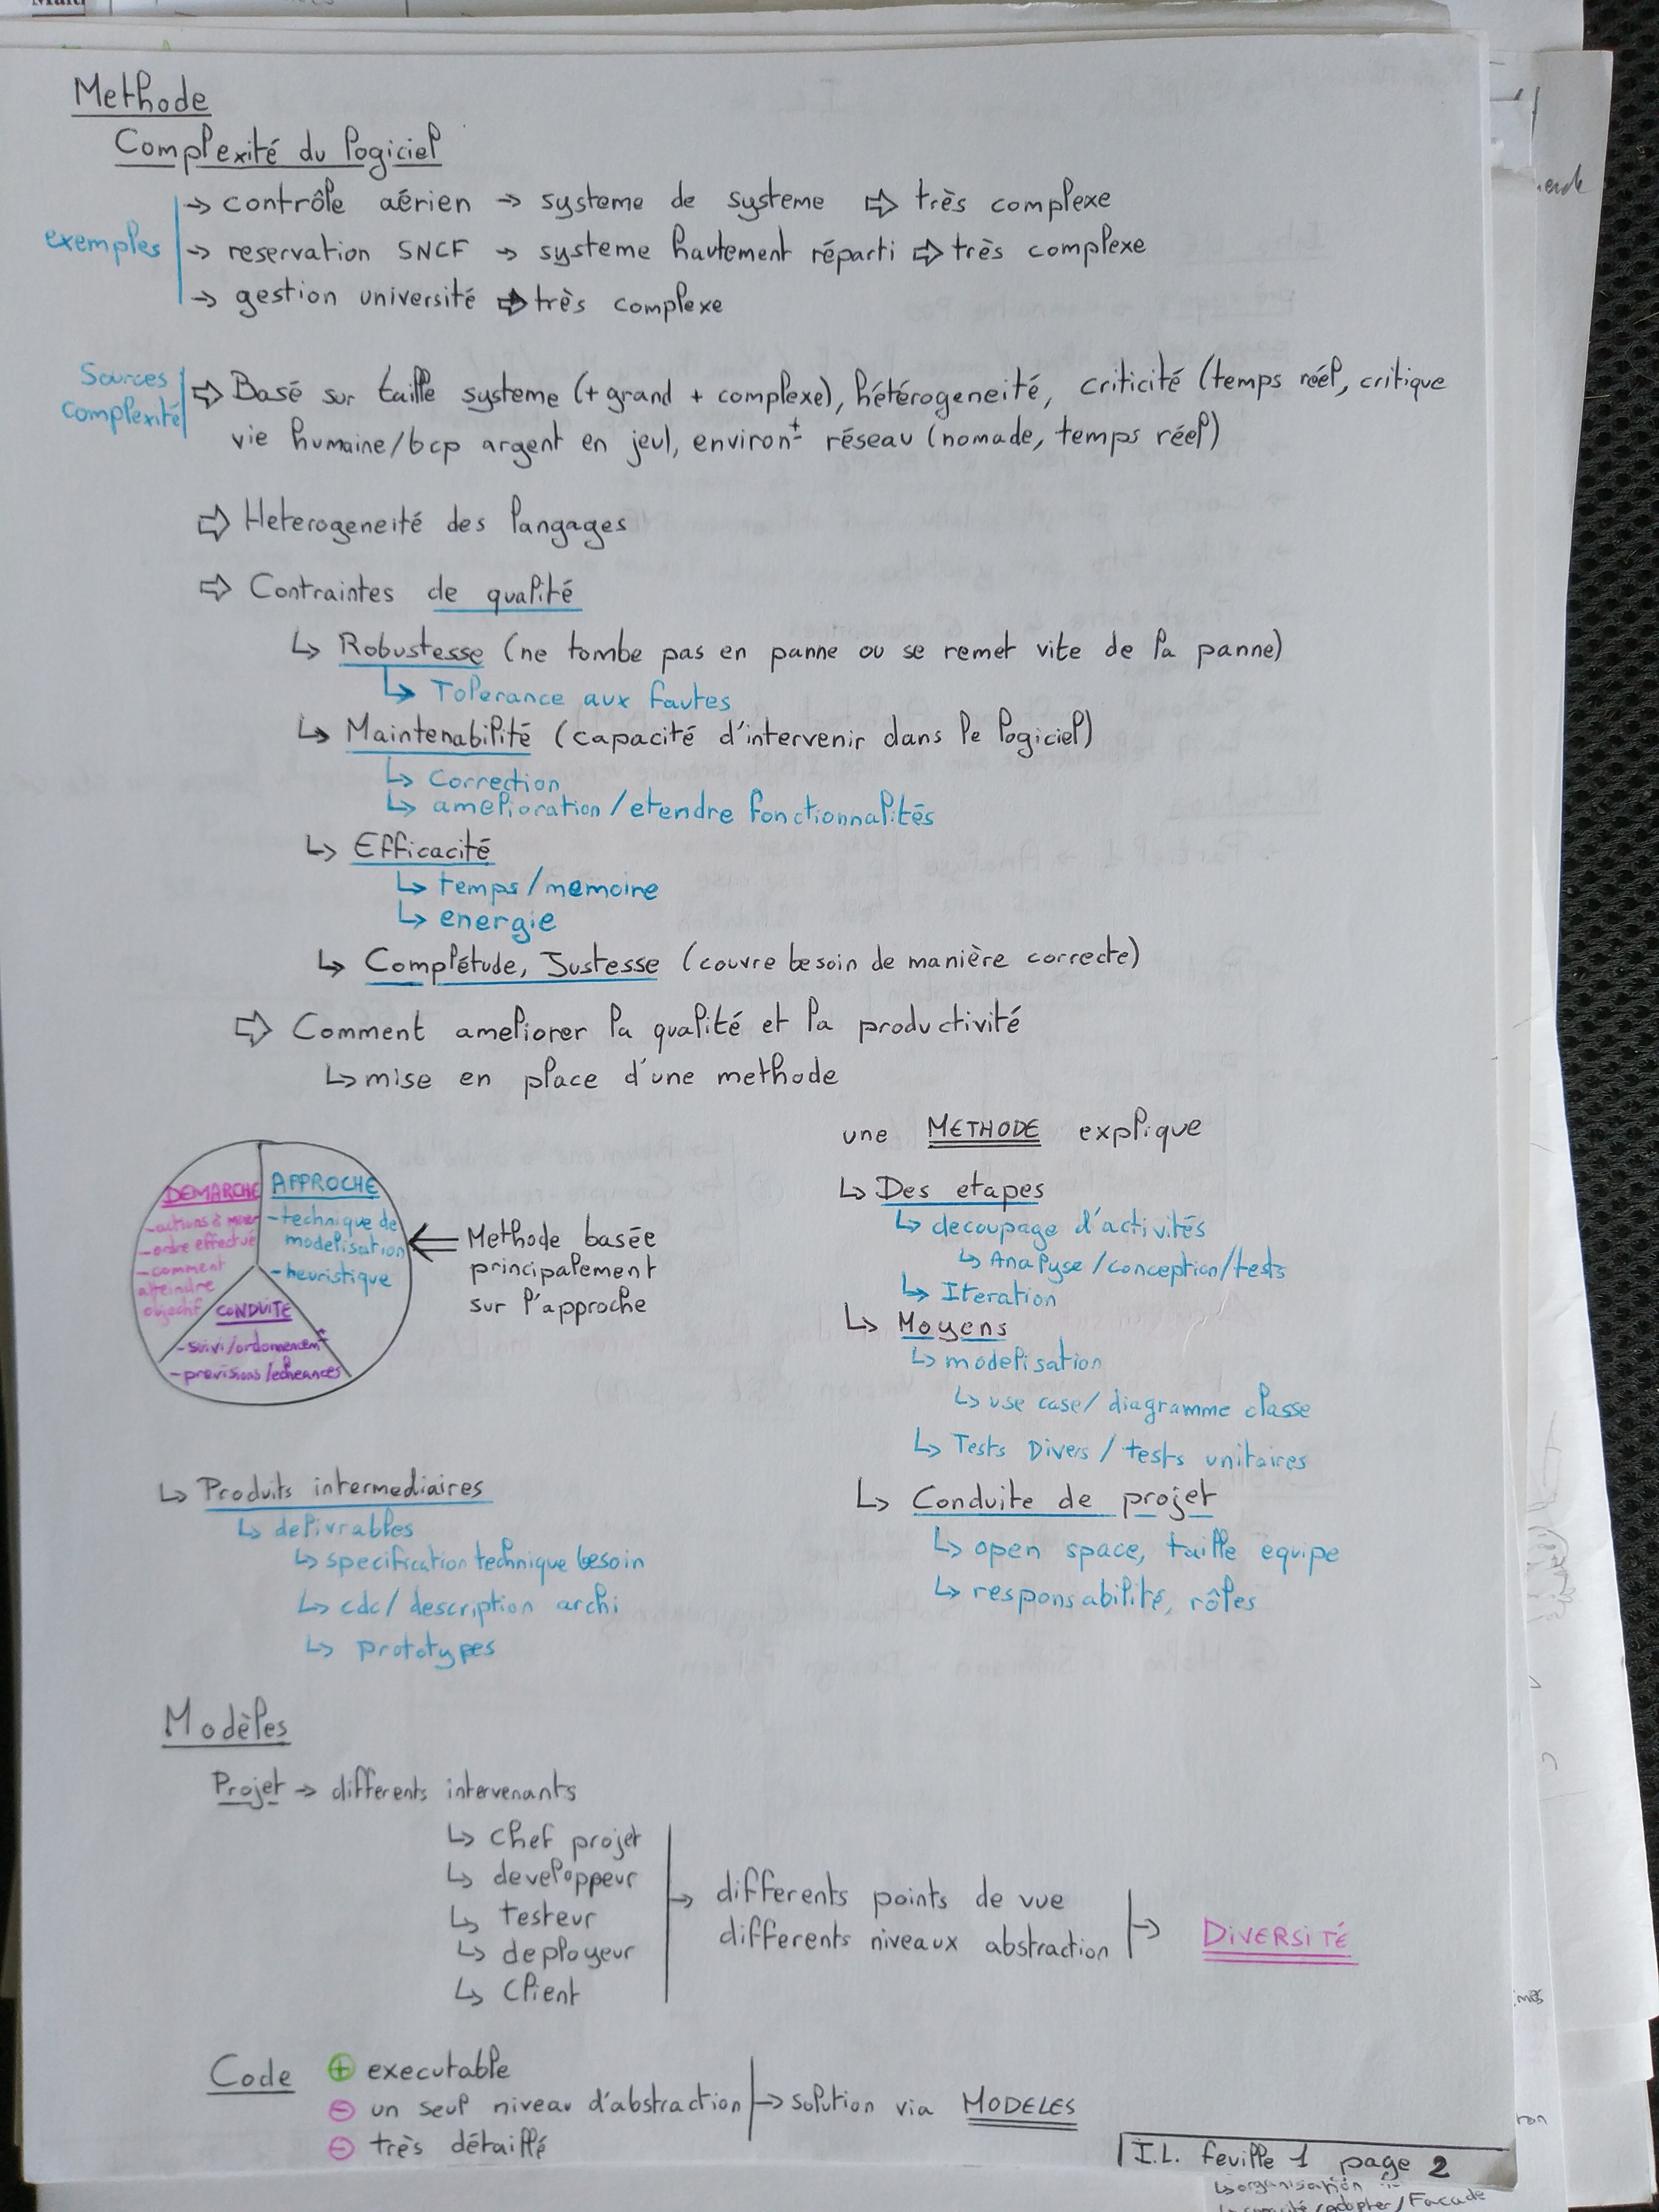 Methode
Complexité du logiciel
exemples
→ contrôle aérien → systeme de systeme ⇨ très complexe
→ reservation SNCF → systeme hautement réparti ⇨ très complexe
→ gestion université ⇨ très complexe
Sources complexité
⇨ Basé sur taille systeme (+ grand + complexe), hétérogeneité, criticité (temps réel, critique
vie humaine/bcp argent en jeu), environt réseau (nomade, temps réel)
⇨ Heterogeneité des langages
⇨ Contraintes de qualité
↳ Robustesse (ne tombe pas en panne ou se remet vite de la panne)
↳ Tolerance aux fautes
↳ Maintenabilité (capacité d'intervenir dans le logiciel)
↳ Correction
↳ amelioration/etendre fonctionnalités
↳ Efficacité
↳ temps/memoire
↳ energie
↳ Complétude, Justesse (couvre besoin de manière correcte)
⇨ Comment ameliorer la qualité et la productivité
↳ mise en place d'une methode
DEMARCHE
- actions à mener
- ordre effectué
- comment
atteindre
objectif
APPROCHE
- technique de
modelisation
- heuristique
CONDUITE
- suivi/ordonnencemt
- previsions/echeances
Methode basée
principalement
sur l'approche
une METHODE explique
↳ Des etapes
↳ decoupage d'activités
↳ Analyse/conception/tests
↳ Iteration
↳ Moyens
↳ modelisation
↳ use case/ diagramme classe
↳ Tests Divers / tests unitaires
↳ Conduite de projet
↳ open space, taille equipe
↳ responsabilité, rôles
↳ Produits intermediaires
↳ delivrables
↳ specification technique besoin
↳ cdc/ description archi
↳ prototypes
Modèles
Projet → differents intervenants
↳ chef projet
↳ developpeur
↳ testeur
↳ deployeur
↳ Client
→ differents points de vue
differents niveaux abstraction
→ DIVERSITÉ
Code ⊕ executable
⊖ un seul niveau d'abstraction → solution via MODELES
⊖ très détaillé
I.L. feuille 1 page 2
↳ organisation